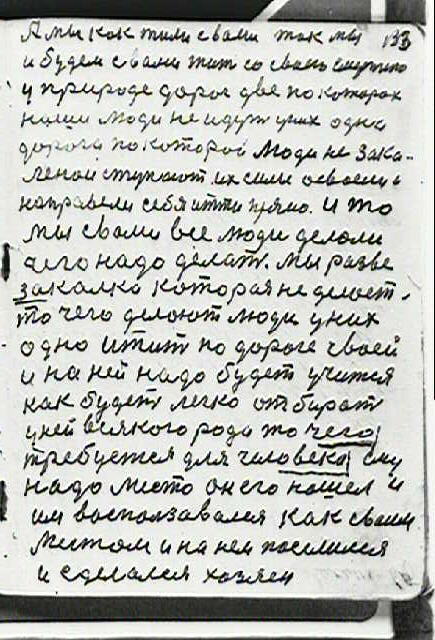 А мы как жили с вами так мы 133
и будем с вами жит со своею смертию
у природе дорог две по которах
наши люди не идут у них одна
дорога по которой люди не зака-
леной ступают их силы освоени с
направели себя итти прямо. И то
мы с вами все люди делали
чего надо делат. мы разве
закалка которая не делает.
то чего делают люди у них
одно и тит по дороге своей
и на ней надо будет учится
как будет легко отбират
у ней всякого рода то чего
требуется для человека ему
надо место он его нашел и
им воспользавался как своим
местом и на нем поселился
и сделался хозяен